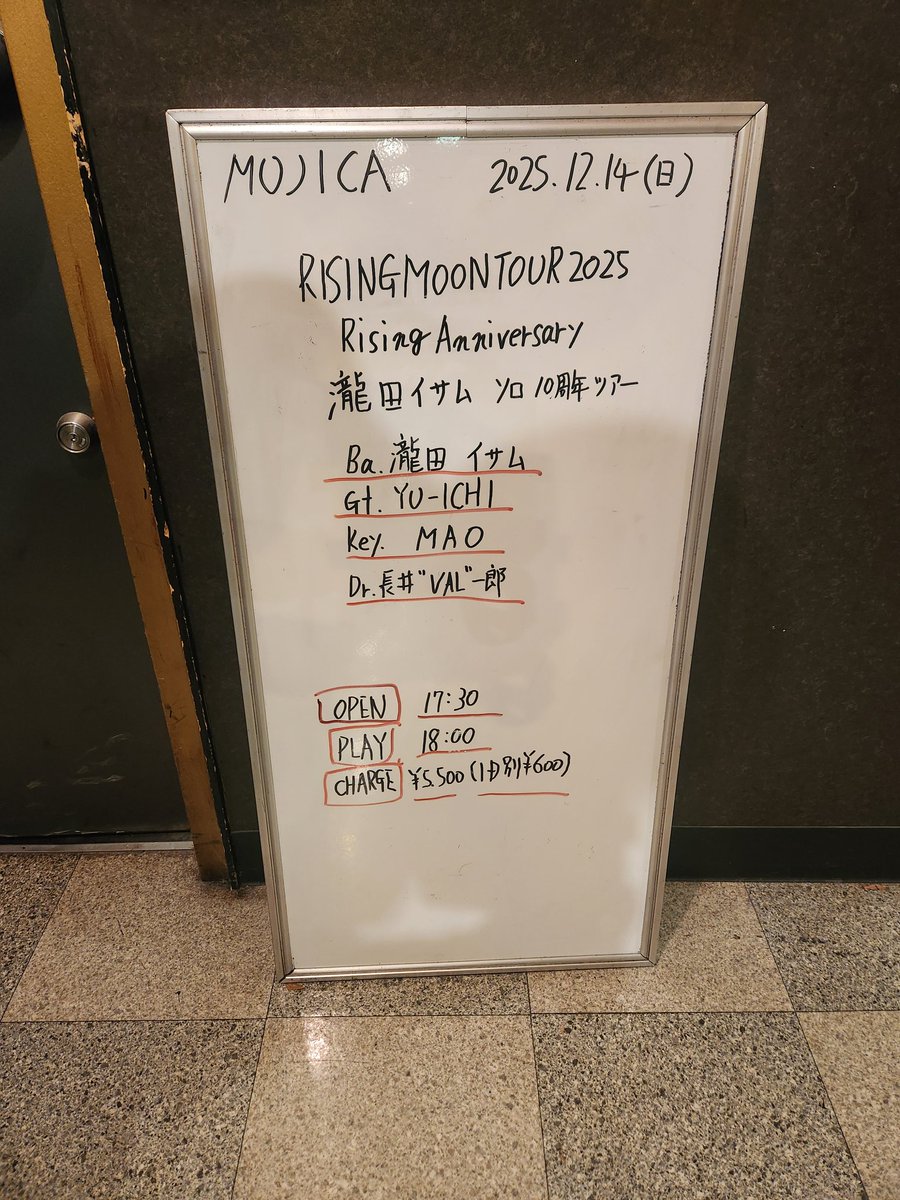 MOJICA 2025.12.14(日)
RISING MOON TOUR 2025
Rising Anniversary
瀧田イサム ソロ 10周年ツアー
Ba. 瀧田 イサム
Gt. YU-ICHI
Key. MAO
Dr. 長井"VAL"一郎
OPEN 17:30
PLAY 18:00
CHARGE ¥5.500 (1D別¥600)